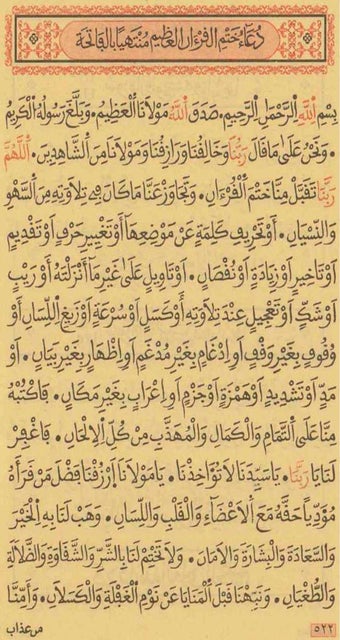 دُعَاءُ خَتْمِ الْقُرْءَانِ الْعَظِيمِ مُنْتَهِيًا بِالْفَاتِحَةِ
بِسْمِ اللَّهِ الرَّحْمَٰنِ الرَّحِيمِ. صَدَقَ اللَّهُ مَوْلَانَا الْعَظِيمُ. وَبَلَّغَ رَسُولُهُ الْكَرِيمُ
. وَنَحْنُ عَلَىٰ مَا قَالَ رَبُّنَا وَخَالِقُنَا وَرَازِقُنَا وَمَوْلَانَا مِنَ الشَّاهِدِينَ. اللَّهُمَّ
رَبَّنَا تَقَبَّلْ مِنَّا خَتْمَ الْقُرْءَانِ. وَتَجَاوَزْ عَنَّا مَا كَانَ فِي تِلَاوَتِهِ مِنَ السَّهْوِ
وَالنِّسْيَانِ. أَوْ تَحْرِيفِ كَلِمَةٍ عَنْ مَوْضِعِهَا أَوْ تَغْيِيرِ حَرْفٍ أَوْ تَقْدِيمٍ
أَوْ تَأْخِيرٍ أَوْ زِيَادَةٍ أَوْ نُقْصَانٍ. أَوْ تَأْوِيلٍ عَلَىٰ غَيْرِ مَا أَنْزَلْتَهُ أَوْ رَيْبٍ
أَوْ شَكٍّ أَوْ تَعْجِيلٍ عِنْدَ تِلَاوَتِهِ أَوْ كَسَلٍ أَوْ سُرْعَةٍ أَوْ زَيْغِ اللِّسَانِ أَوْ
وُقُوفٍ بِغَيْرِ وَقْفٍ أَوِ ادْغَامٍ بِغَيْرِ مُدْغَمٍ أَوِ اظْهَارٍ بِغَيْرِ بَيَانٍ. أَوْ
مَدٍّ أَوْ تَشْدِيدٍ أَوْ هَمْزَةٍ أَوْ جَزْمٍ أَوِ اعْرَابٍ بِغَيْرِ مَكَانٍ. فَاكْتُبْهُ
مِنَّا عَلَى التَّمَامِ وَالْكَمَالِ وَالْمُهَذَّبِ مِنْ كُلِّ الْأَلْحَانِ. فَاغْفِرْ
لَنَا يَا رَبَّنَا. يَا سَيِّدَنَا لَا تُؤَاخِذْنَا. يَا مَوْلَانَا ارْزُقْنَا فَضْلَ مَنْ قَرَأَهُ
مُؤَدِّيًا حَقَّهُ مَعَ الْأَعْضَاءِ وَالْقَلْبِ وَاللِّسَانِ. وَهَبْ لَنَا بِهِ الْخَيْرَ
وَالسَّعَادَةَ وَالْبِشَارَةَ وَالْأَمَانَ. وَلَا تَخْتِمْ لَنَا بِالشَّرِّ وَالشَّقَاوَةِ وَالضَّلَالَةِ
وَالطُّغْيَانِ. وَنَبِّهْنَا قَبْلَ الْمَنَايَا عَنْ نَوْمِ الْغَفْلَةِ وَالْكَسَلَانِ. وَأَمِنَّا
٥٢٢ من عذاب